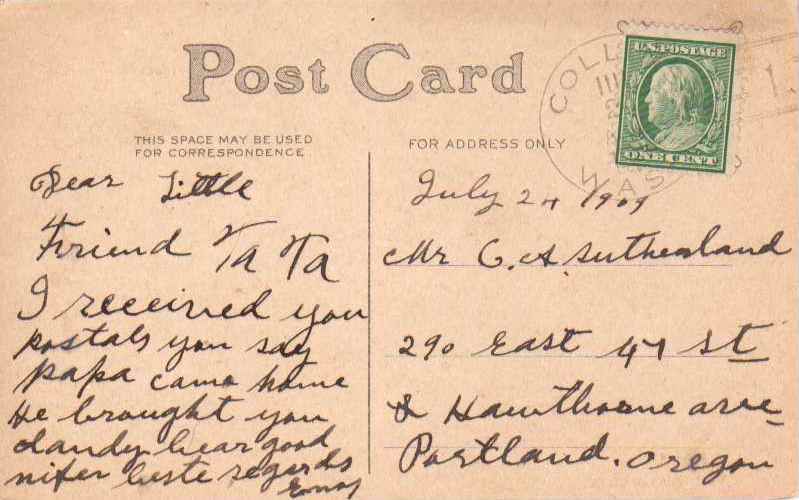 Post Card
THIS SPACE MAY BE USED
FOR CORRESPONDENCE
FOR ADDRESS ONLY
U.S. POSTAGE
ONE CENT
COLL
WAS
Dear Little
Friend Ta Ta
I received you
postals you say
papa came home
He brought you
dandy bear good
beste regards
July 24 1909
Mr C. A. Sutherland
290 East 47 St
& Hawthorne ave
Portland. Oregon